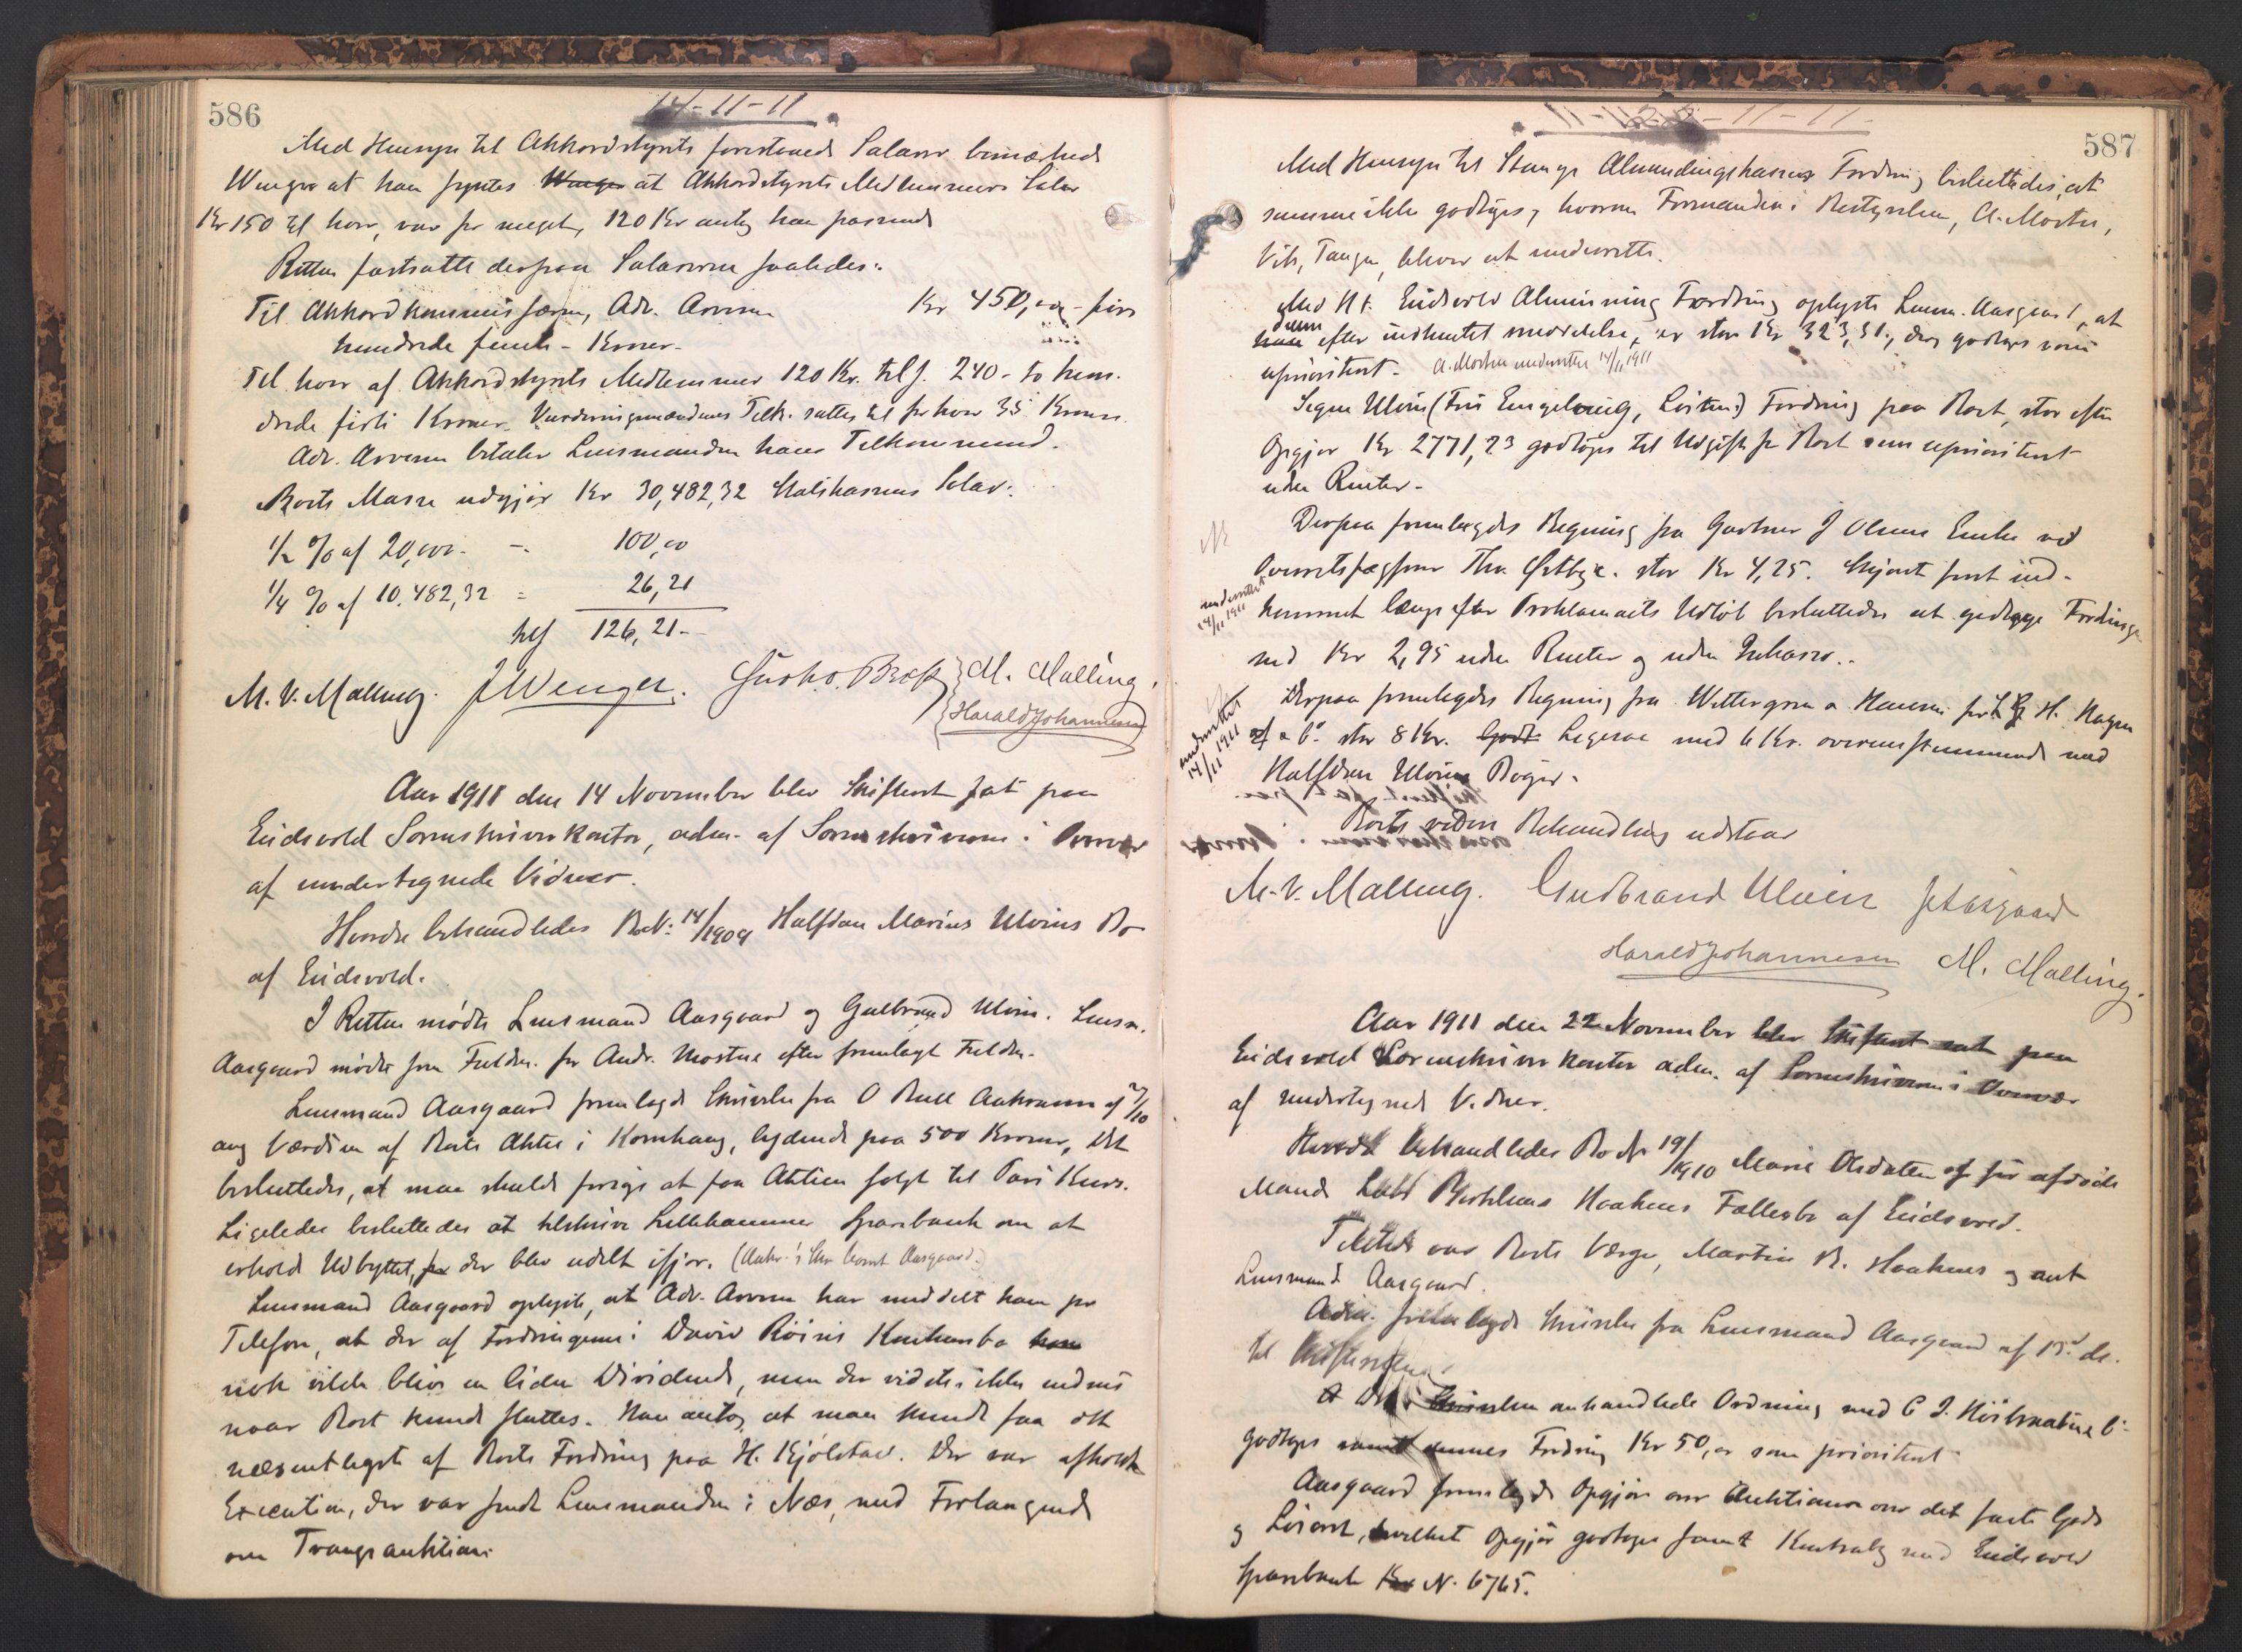 586
14-11-11
Med Hensyn til Akkordstyrets forestaaende Salarer bemærkede
Wenger at han syntes Wenger at Akkordstyrets Medlemmers Salar
Kr 150 til hver, var for meget, 120 Kr antog han passende
Retten fastsatte derpaa Salarerne saaledes:
Til Akkordkommissæren, Adv. Arnesen Kr 450,00 - fire
hundrede femti - Kroner.
Til hver af Akkordstyrets Medlemmer 120 Kr. tils. 240 - to hun-
drede firti Kroner. Vurderingsmændenes Telk. sattes til for hver 35 Kroner.
Adv. Arnesen betaler Lensmanden hans Tilkommende.
Boets Masse udgjør Kr 30,482,32 Statskassens Salar:
1/2 % af 20,000. - 100,00
1/4 % af 10.482,32 = 26,21
tils 126,21 -
M. V. Malling. J Wenger. M. Malling.
Harald Johannesen
Aar 1911 den 14 November blev Skifteret sat paa
Eidsvold Sorenskriverkontor, adm. af Sorenskriveren i Overvær
af undertegnede Vidner.
Hvorda behandledes Bo N: 14/1909 Halfdan Marius Ulvins Bo
af Eidsvold.
I Retten mødte Lensmand Aasgaard og Gulbrand Ulvin. Lensm.
Aasgaard mødte som Fuldm. for Andr. Mostue efter fremlagt Fuldm.
Lensmand Aasgaard fremlagde Skrivelse fra O Bull Aakrann af 7/10
ang Værdien af Boets Aktie i Kornhaug, lydende paa 500 Kroner, Det
besluttedes, at man skulde forsøge at faa Aktien solgt til Pari Kurs.
Ligeledes besluttedes at tilskrive Lillehammer Sparebank om at
erholde Udbyttet, for der blev udelt ifjor.
Lensmand Aasgaard oplyste, at Adv. Arnesen har meddelt ham pr
Telefon, at der af Fordringerne i David Röises Konkursbo han
nok vilde blive en liden Dividende, men der vidstes ikke endnu
naar Boet kunde sluttes. Han antog at man kunde faa det
væsentligste af Boets Fordring paa H. Kjölstad. Der var afholdt
Execution, der var sendt Lensmanden i Næs, med Forlangende
om Tvangsauktion.
587
Med Hensyn til Stange Almendingskasses Fordring besluttedes, at
samme ikke godtages, hvorom Formanden i Bestyrelsen, A. Mostu,
Vik, Tangen, bliver at underrette.
Med H. t. Eidsvold Alminning Fordring oplyste Lensm. Aasgaard, at
denne
han efter indhentet meddelelse, er stor Kr 323,31., den godtages som
uprioritert. A. Mostu underrettet 14/11 1911
Signe Ulvin (Fru Engelaug, Löiten) Fordring paa Boet, stor efter
Opgjør Kr 2771,23 godtages til Udgift for Boet som uprioritert
uden Renter.
Derpaa fremlagdes Regning fra Gartner J Olsens Enke ved
Overretssagfører Thv. Østbye. stor Kr 4,25. Skjønt først ind-
kommet længe efter Proklamaets Udløb besluttedes at godtage Fordringen
med Kr 2,95 uden Renter og uden Inkasso.
underrettet
14/11 1911
Derpaa fremlagdes Regning fra Wettergren a Hansen for H. Hagen
stor 8 Kr. Godt Ligesaa med 6 Kr. overensstemmende med
Halfdan Ulvins Bøger.
underrettet
14/11 1911
Boets videre Behandling udstaar
M. V. Malling. Gudbrand Ulvin
Harald Johannesen M. Malling.
Aar 1911 den 22 November blev Skifteret sat paa
Eidsvold Sorenskriverkontor adm. af Sorenskriveren i Overvær
af undertegnede Vidner.
Hvorda behandledes Bo N 19/1910 Marie Olsdatter
Mand Bertheus Haakens Fællesbo af Eidsvold.
Tilstede var Boets Værge, Martin B. Haakens og
Lensmand Aasgaard.
Adm. fremlagde Skrivelse fra Lensmand Aasgaard af 13 ds.
til Skifteretten
Den i Skrivelsen omhandlede Ordning med
godtages samt dennes Fordring Kr 50,00 som prioritert
Aasgaard fremlagde Opgjør over Auktionen over det faste Gods
og Løsøret, hvilket Opgjør godtages samt Kontrabog med Eidsvold
Sparebank N. 6765.